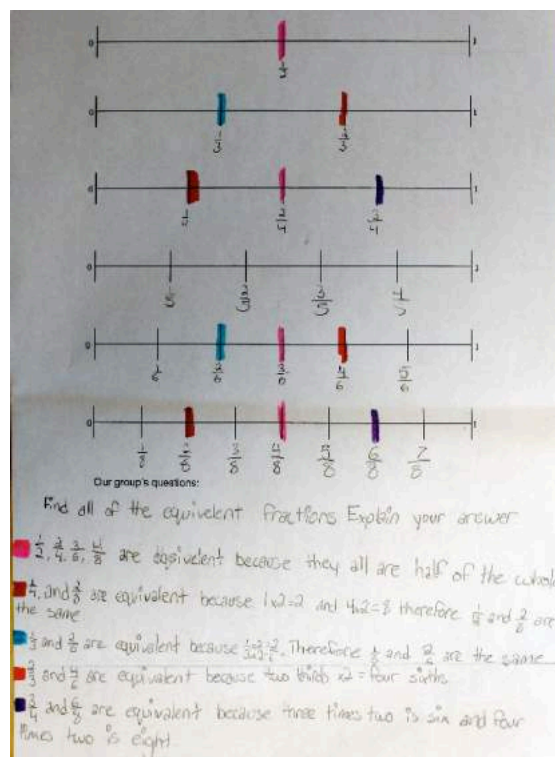 0 1
1/2
0 1
1/3 2/3
0 1
1/4 2/4 3/4
0 1
1/5 2/5 3/5 4/5
0 1
1/6 2/6 3/6 4/6 5/6
0 1
1/8 2/8 3/8 4/8 5/8 6/8 7/8
Our group's questions:
Find all of the equivelent fractions Explain your answer
1/2, 2/4, 3/6, 4/8 are eqsivelent because they all are half of the whole
1/4, and 2/8 are equivalent because 1x2=2 and 4x2=8 therefore 1/4 and 2/8 are
the same
1/3 and 2/6 are equivalent because 1/3x2/2=2/6. Therefore 1/3 and 2/6 are the same
2/3 and 4/6 are equivalent because two thirds x2 = four sixths
3/4 and 6/8 are equivalent because three times two is six and four
times two is eight.